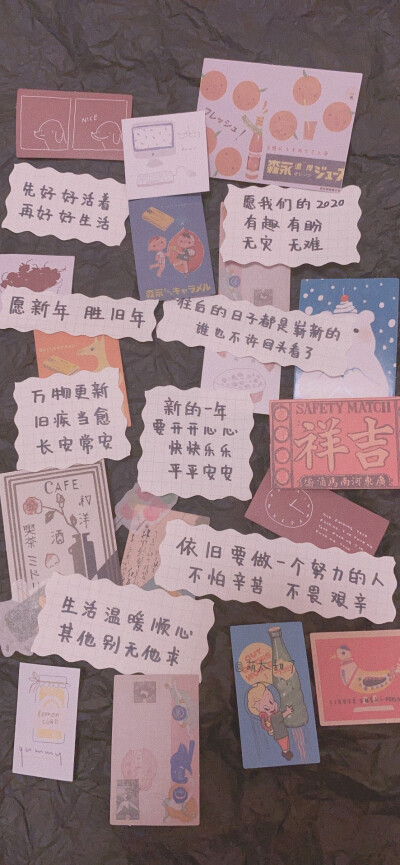 NICE
フレッシュ!
森永
ジュース
先好好活着
再好好生活
愿我们的2020
有趣 有盼
无灾 无难
森永ミルクキャラメル
愿新年 胜旧年
往后的日子都是崭新的
谁也不许回头看了
万物更新
旧疾当愈
长安常安
新的一年
要开开心心
快快乐乐
平平安安
SAFETY MATCH
祥吉
CAFE
洋酒
喫茶
依旧要做一个努力的人
不怕辛苦 不畏艰辛
生活温暖顺心
其他别无他求
yummy